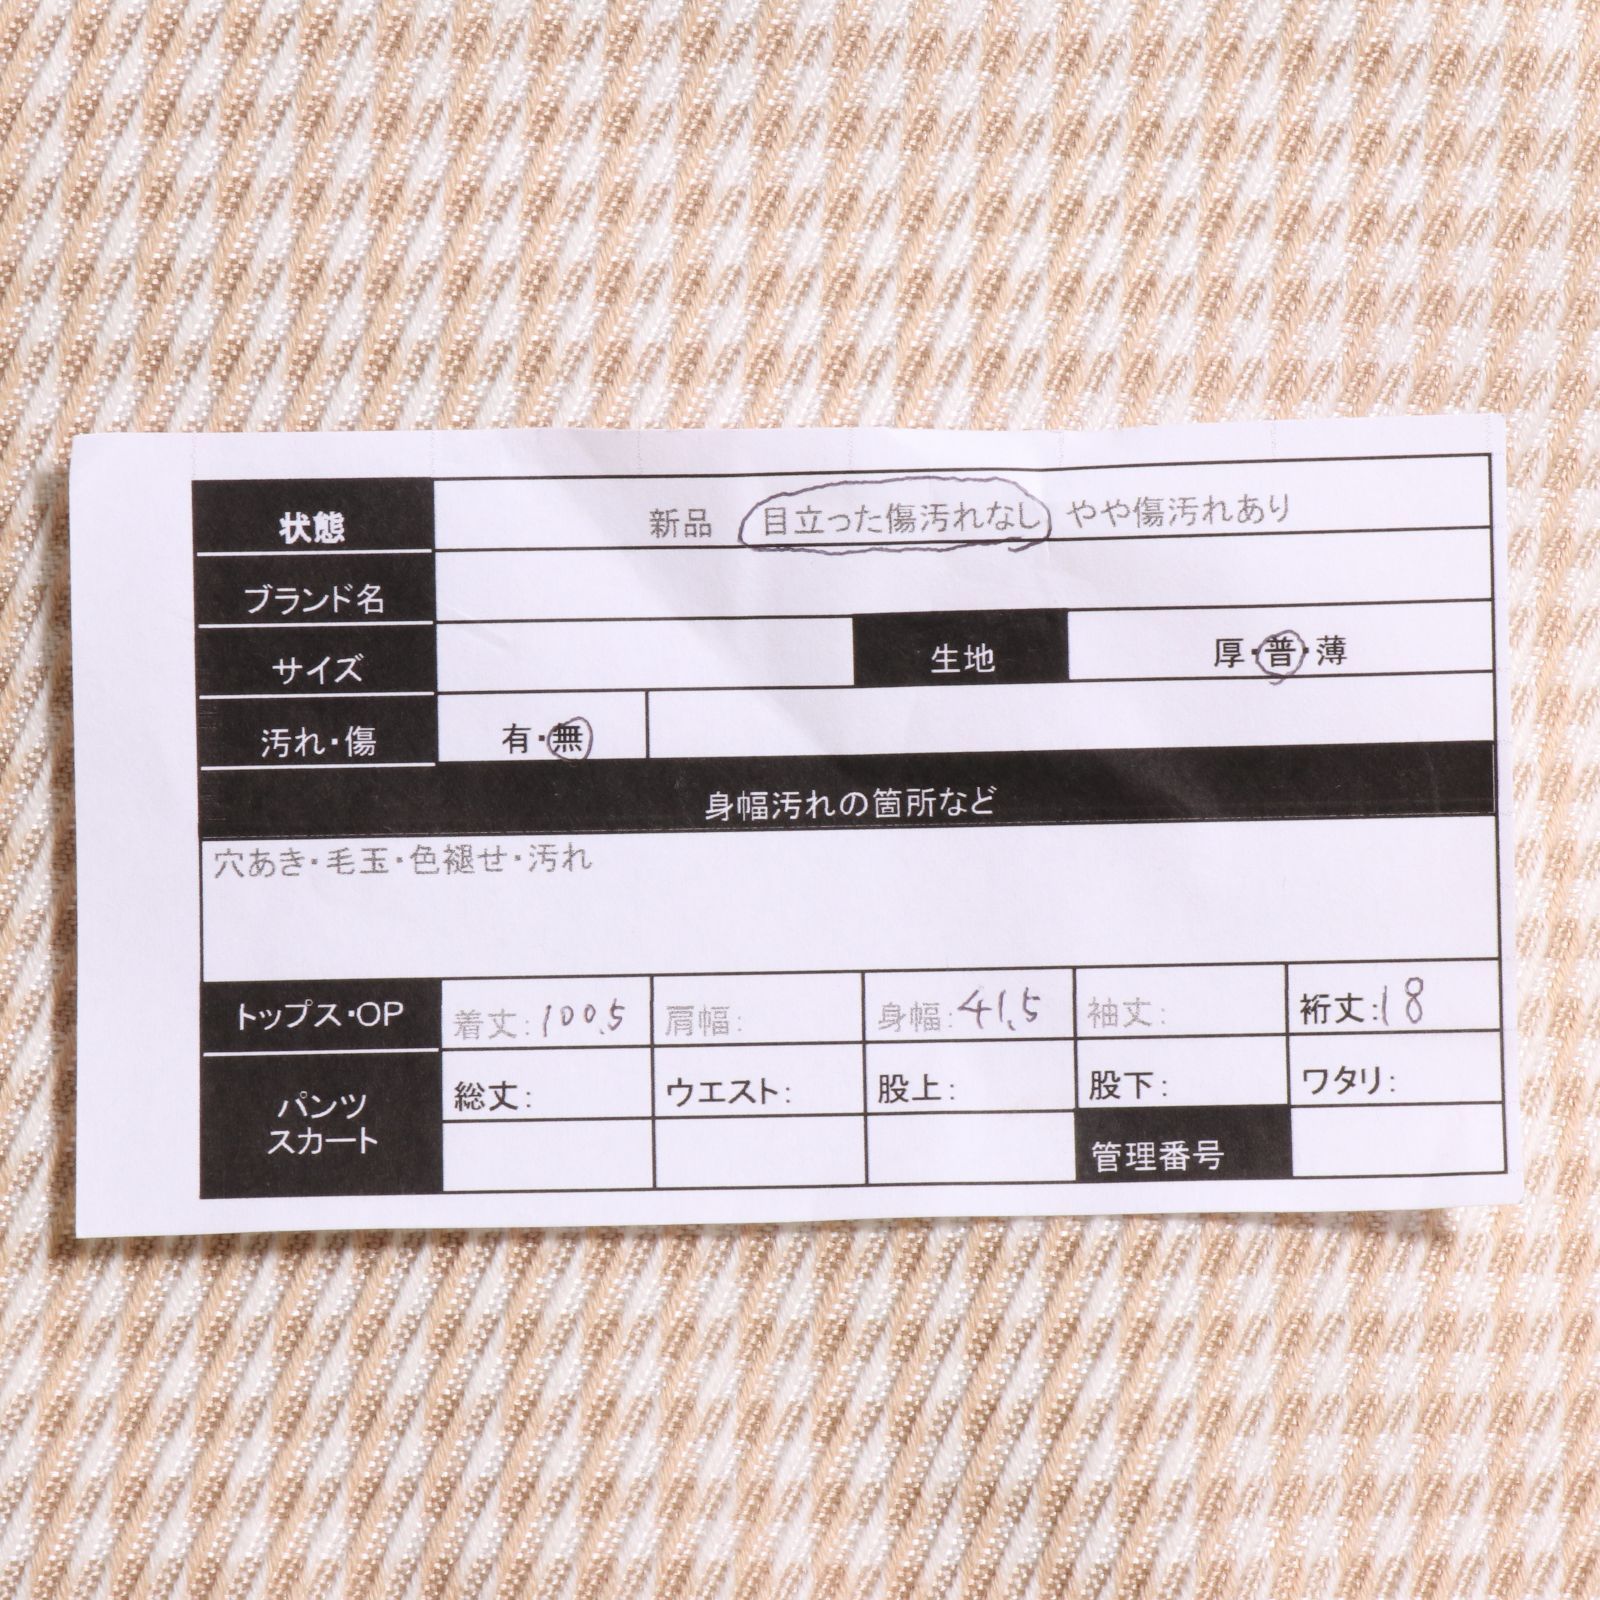 状態 新品 目立った傷汚れなし やや傷汚れあり
ブランド名
サイズ 生地 厚・普・薄
汚れ・傷 有・無
身幅汚れの箇所など
穴あき・毛玉・色褪せ・汚れ
トップス・OP 着丈:100.5 肩幅: 身幅:41.5 袖丈: 裄丈:18
パンツ 総丈: ウエスト: 股上: 股下: ワタリ:
スカート 管理番号